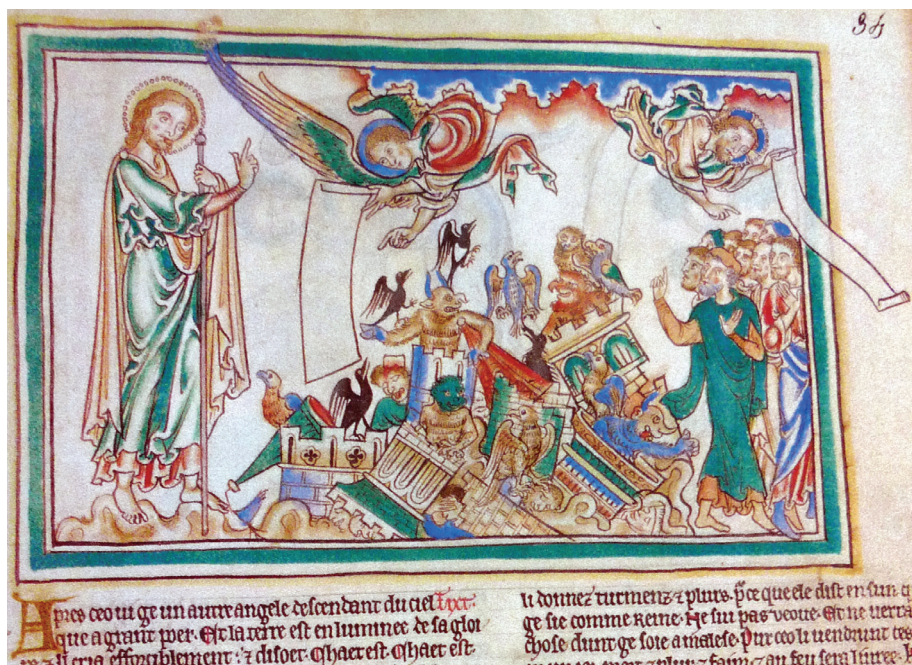 34
Apres ceo ui ge un autre angele descendant du ciel
que a grant poer. Et la terre est enluminee de sa gloi
il cria efforciblement. ⁊ disoet. Chaet est. Chaet est.
li donnez turmenz ⁊ plurs. pce que ele dist en sun q
ge sie comme Reine. Ne sui pas veoue. Et ne verra
chose dunt ge soie a malese. Pur ceo li uendrunt tes
plur ⁊ faim ⁊ au feu sera